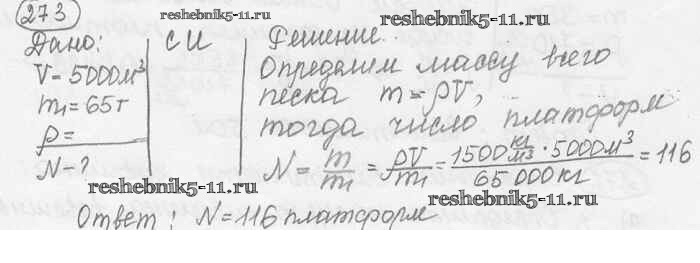 273
reshebnik5-11.ru
reshebnik5-11.ru
Дано: СИ Решение.
V = 5000м³
m₁ = 65т
ρ =
N - ?
Определим массу всего
песка m = ρV,
тогда число платформ
N = m/m₁ = ρV/m₁ = 1500 кг/м³ · 5000м³ / 65 000 кг = 116
reshebnik5-11.ru
reshebnik5-11.ru
Ответ: N = 116 платформ